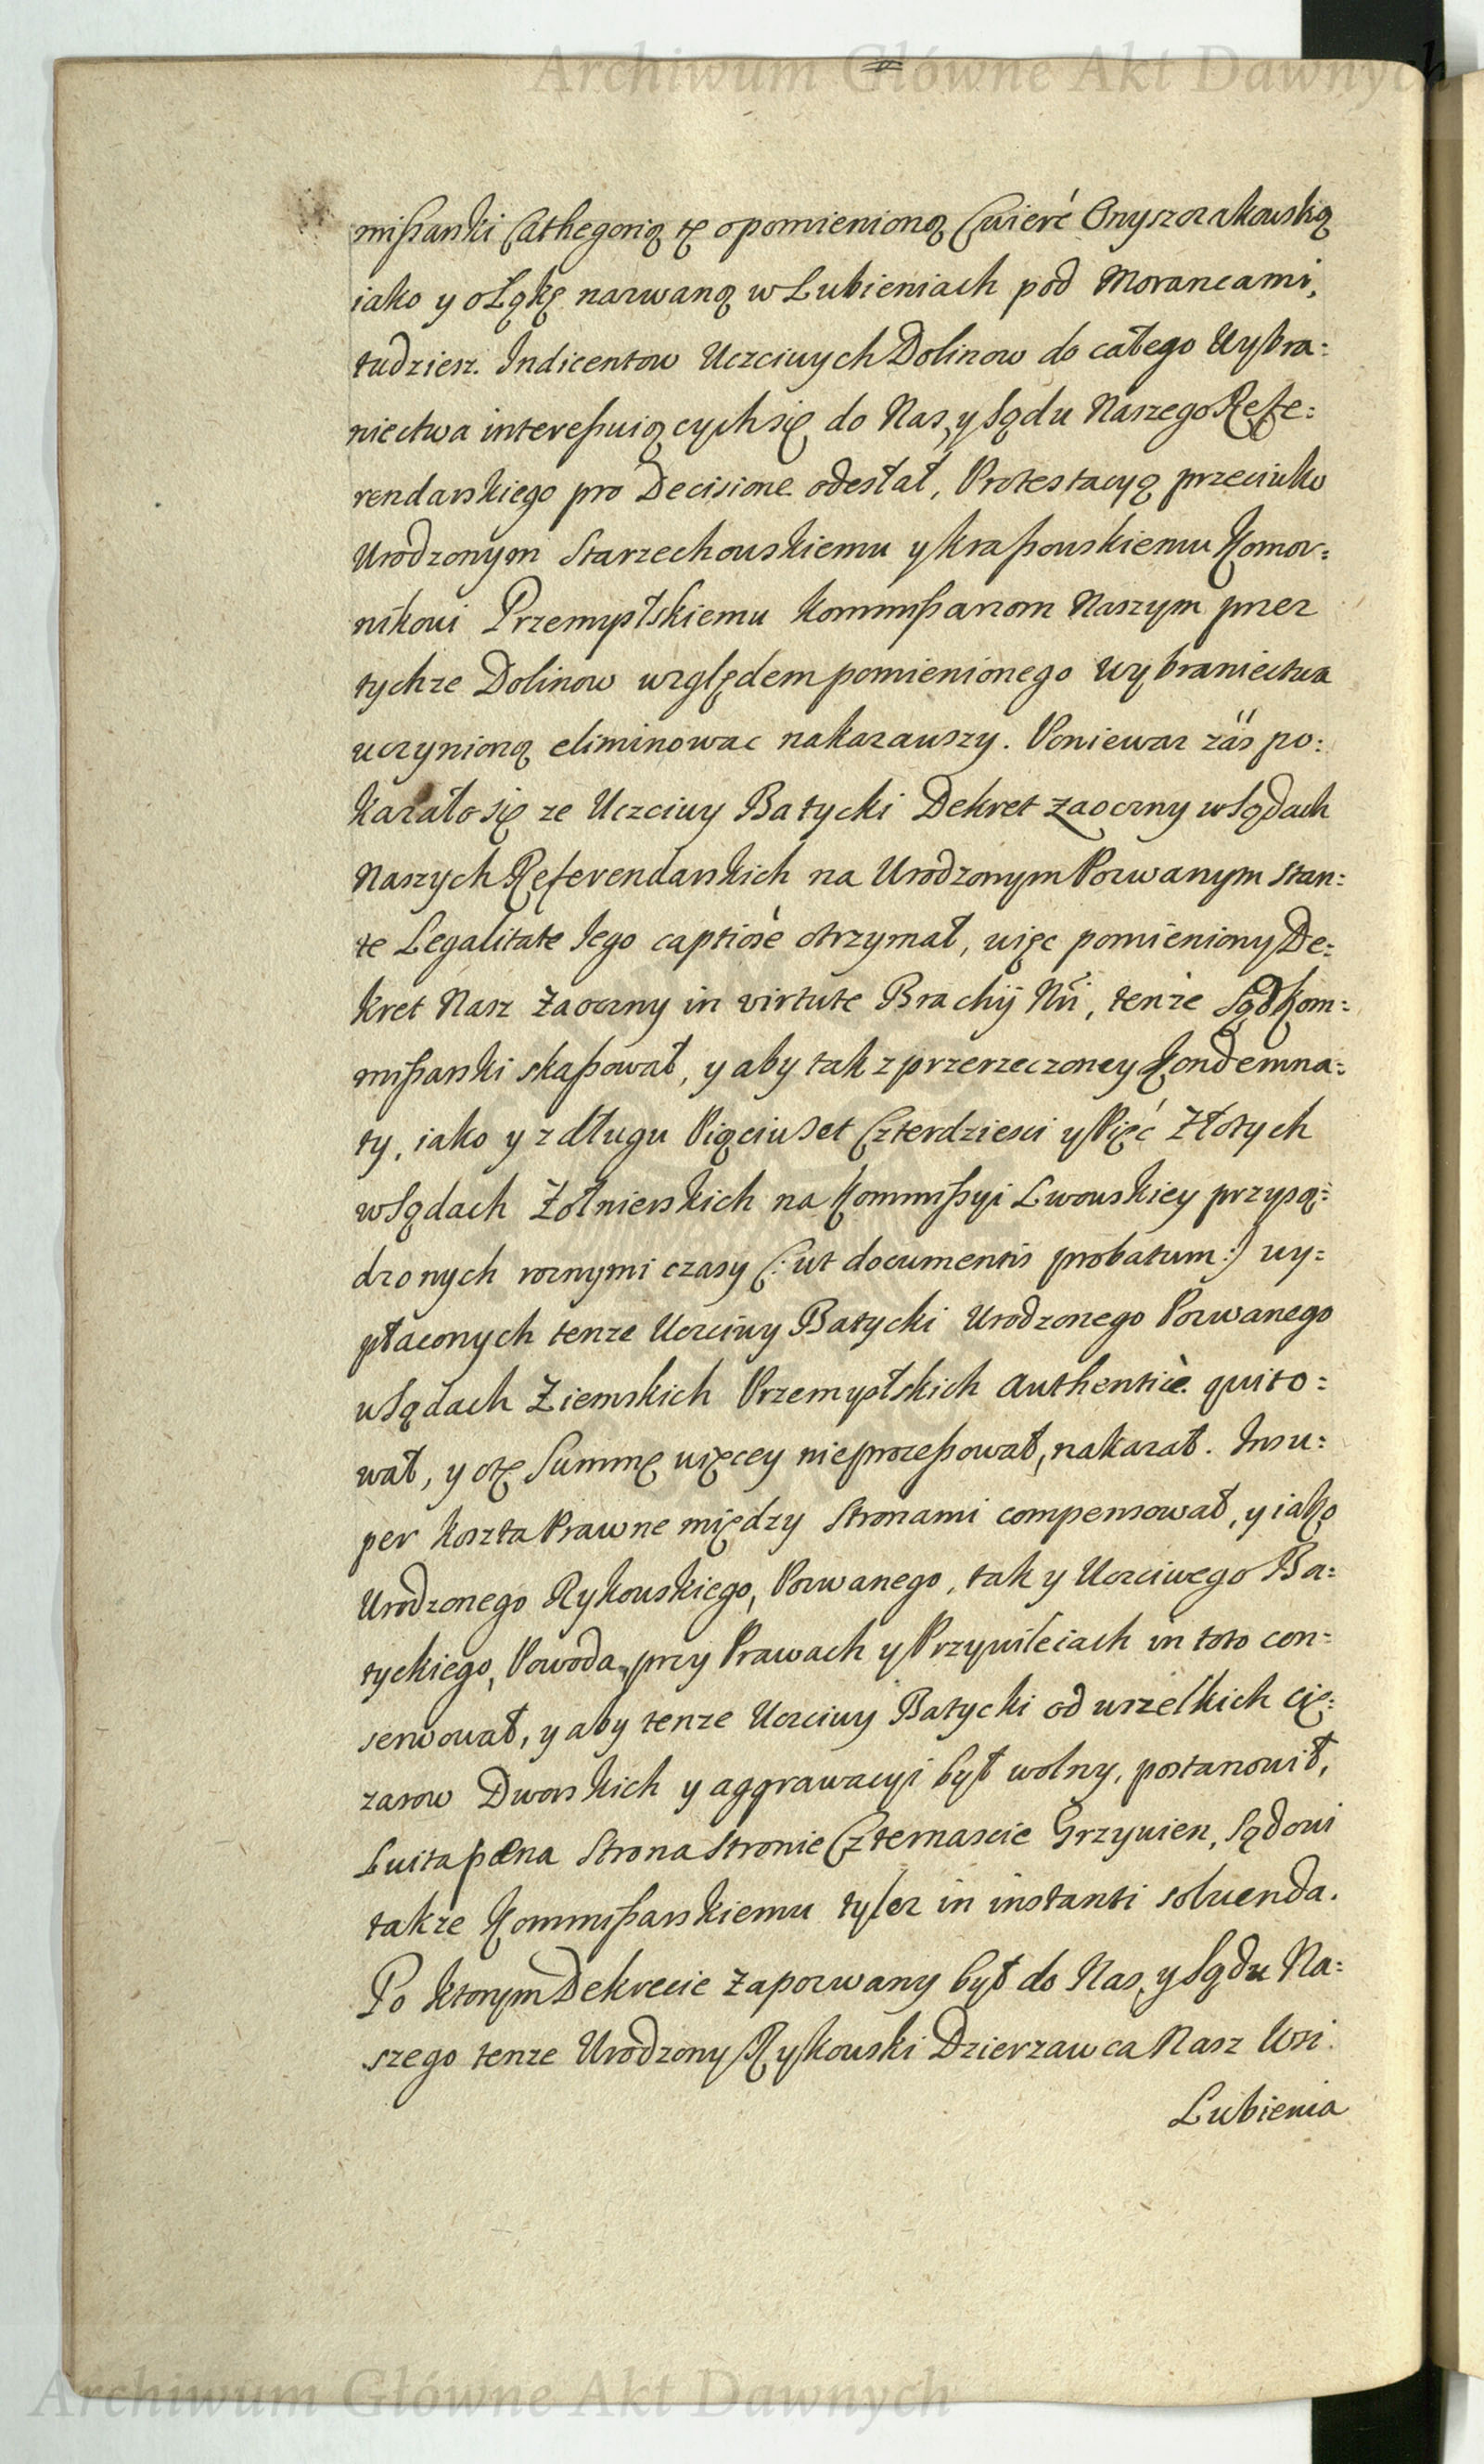 Archiwum Główne Akt Dawnych
mißarski Cathegorią tę o pomienioną Cwierć Onyszczakowską
iako y o Łąkę nazwaną w Lubieniach pod Morancami,
tudziesz Indicentow Uczciwych Dolinow do całego Wybra:
niectwa intereßuiących się do Nas, y Sądu Naszego Refe:
rendarskiego pro Decisione odesłał, Protestacyą przeciwko
Urodzonym Starzechowskiemu y Kraßowskiemu Komor:
nikowi Przemyslskiemu Kommißarzom Naszym przez
tychze Dolinow względem pomienionego Wybraniectwa
uczynioną eliminowac nakazawszy. Poniewaz zás po:
kazało się ze Uczciwy Batycki Dekret Zaoczny w Sądach
Naszych Referendarskich na Urodzonym Pozwanym stan:
te Legalitate Iego captiosè otrzymał, więc pomieniony De:
kret Nasz Zaoczny in virtute Brachij Nri, tenże Sąd Kom:
mißarski skaßował, y aby tak z przerzeczoney Kondemna:
ty, iako y z długu Pięciuset Czterdziesci y Pięć Złotych
w Sądach Żołnierskich na Kommißyi Lwowskiey przysą:
dzonych roznymi czasy (: ut documentis probatum :) wy:
płaconych tenze Uczciwy Batycki Urodzonego Pozwanego
w Sądach Ziemskich Przemyslskich authenticè quito:
wał, y o tę Summę więcey nieproceßował, nakazał. Insu:
per koszta Prawne między Stronami compensował, y iako
Urodzonego Rykowskiego, Pozwanego, tak y Uczciwego Ba:
tyckiego, Powoda, przy Prawach y Przywileiach in toto con:
serwował, y aby tenze Uczciwy Batycki od wszelkich cię:
zarow Dworskich y aggrawacyi był wolny, postanowił,
Luita pœna Strona Stronie Czternascie Grzywien, Sądowi
takze Kommißarskiemu tylez in instanti solvenda.
Po ktorym Dekrecie Zapozwany był do Nas, y Sądu Na:
szego tenze Urodzony Rykowski Dzierzawca Nasz Wsi
Lubienia
Archiwum Główne Akt Dawnych